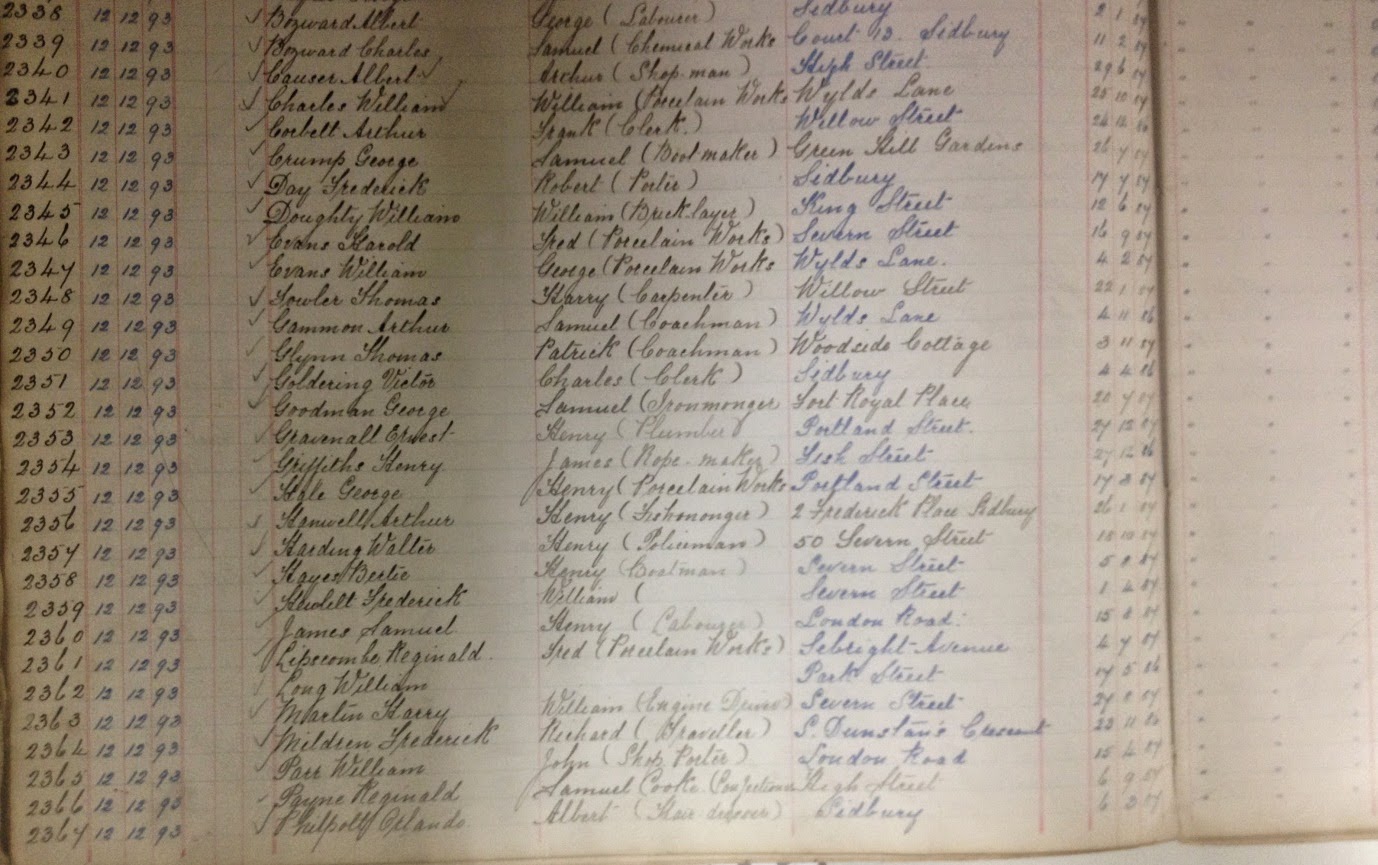 2338 12 12 93 Bozward Albert George (Labourer) Sidbury 2 1 87
2339 12 12 93 Bozward Charles Samuel (Chemical Works Court 13. Sidbury 11 2 87
2340 12 12 93 Causer Albert Arthur (Shop-man) High Street 29 6 87
2341 12 12 93 Charles William William (Porcelain Works Wylds Lane 25 10 87
2342 12 12 93 Corbett Arthur Frank (Clerk.) Willow Street 12
2343 12 12 93 Crump George Samuel (Boot maker) Green Hill Gardens 26 7 87
2344 12 12 93 Day Frederick Robert (Porter) Sidbury 17 7 87
2345 12 12 93 Doughty William William (Bricklayer) King Street 12 6 87
2346 12 12 93 Evans Harold Fred (Porcelain Works) Severn Street 16 9 87
2347 12 12 93 Evans William George (Porcelain Works Wylds Lane. 4 2 87
2348 12 12 93 Fowler Thomas Harry (Carpenter) Willow Street 22 1 87
2349 12 12 93 Gammon Arthur Samuel (Coachman) Wylds Lane 4 11 86
2350 12 12 93 Glynn Thomas Patrick (Coachman) Woodside Cottage 3 11 87
2351 12 12 93 Goldering Victor Charles (Clerk) Sidbury 4 4 86
2352 12 12 93 Goodman George Samuel (Ironmonger Fort Royal Place 20 7 87
2353 12 12 93 Gravenall Ernest Henry (Plumber) Portland Street. 27 12 87
2354 12 12 93 Griffiths Henry James (Rope-maker) Fish Street 27 12 86
2355 12 12 93 Hale George Henry (Porcelain Works Portland Street 17 3 87
2356 12 12 93 Hanwell Arthur Henry (Fishmonger) 2 Frederick Place Sidbury 26 1 87
2357 12 12 93 Harding Walter Henry (Policeman) 50 Severn Street 18 10 87
2358 12 12 93 Hayes Bertie Henry (Boatman) Severn Street 5 8 87
2359 12 12 93 Hewlett Frederick William ( Severn Street 1 4 87
2360 12 12 93 James Samuel Henry (Labourer) London Road. 15 8 87
2361 12 12 93 Lipscombe Reginald. Fred (Porcelain Works) Sebright Avenue 4 7 87
2362 12 12 93 Long William Park Street 17 5 86
2363 12 12 93 Martin Harry William (Engine Driver) Severn Street 27 8 87
2364 12 12 93 Mildren Frederick Richard (Traveller) S. Dunstan's Crescent 23 11
2365 12 12 93 Parr William John (Shop Porter) London Road 15 4 87
2366 12 12 93 Payne Reginald Samuel Cooke (Confectioner High Street 6 9 87
2367 12 12 93 Philpott Orlando Albert (Hair-dresser) Sidbury 6 3 87